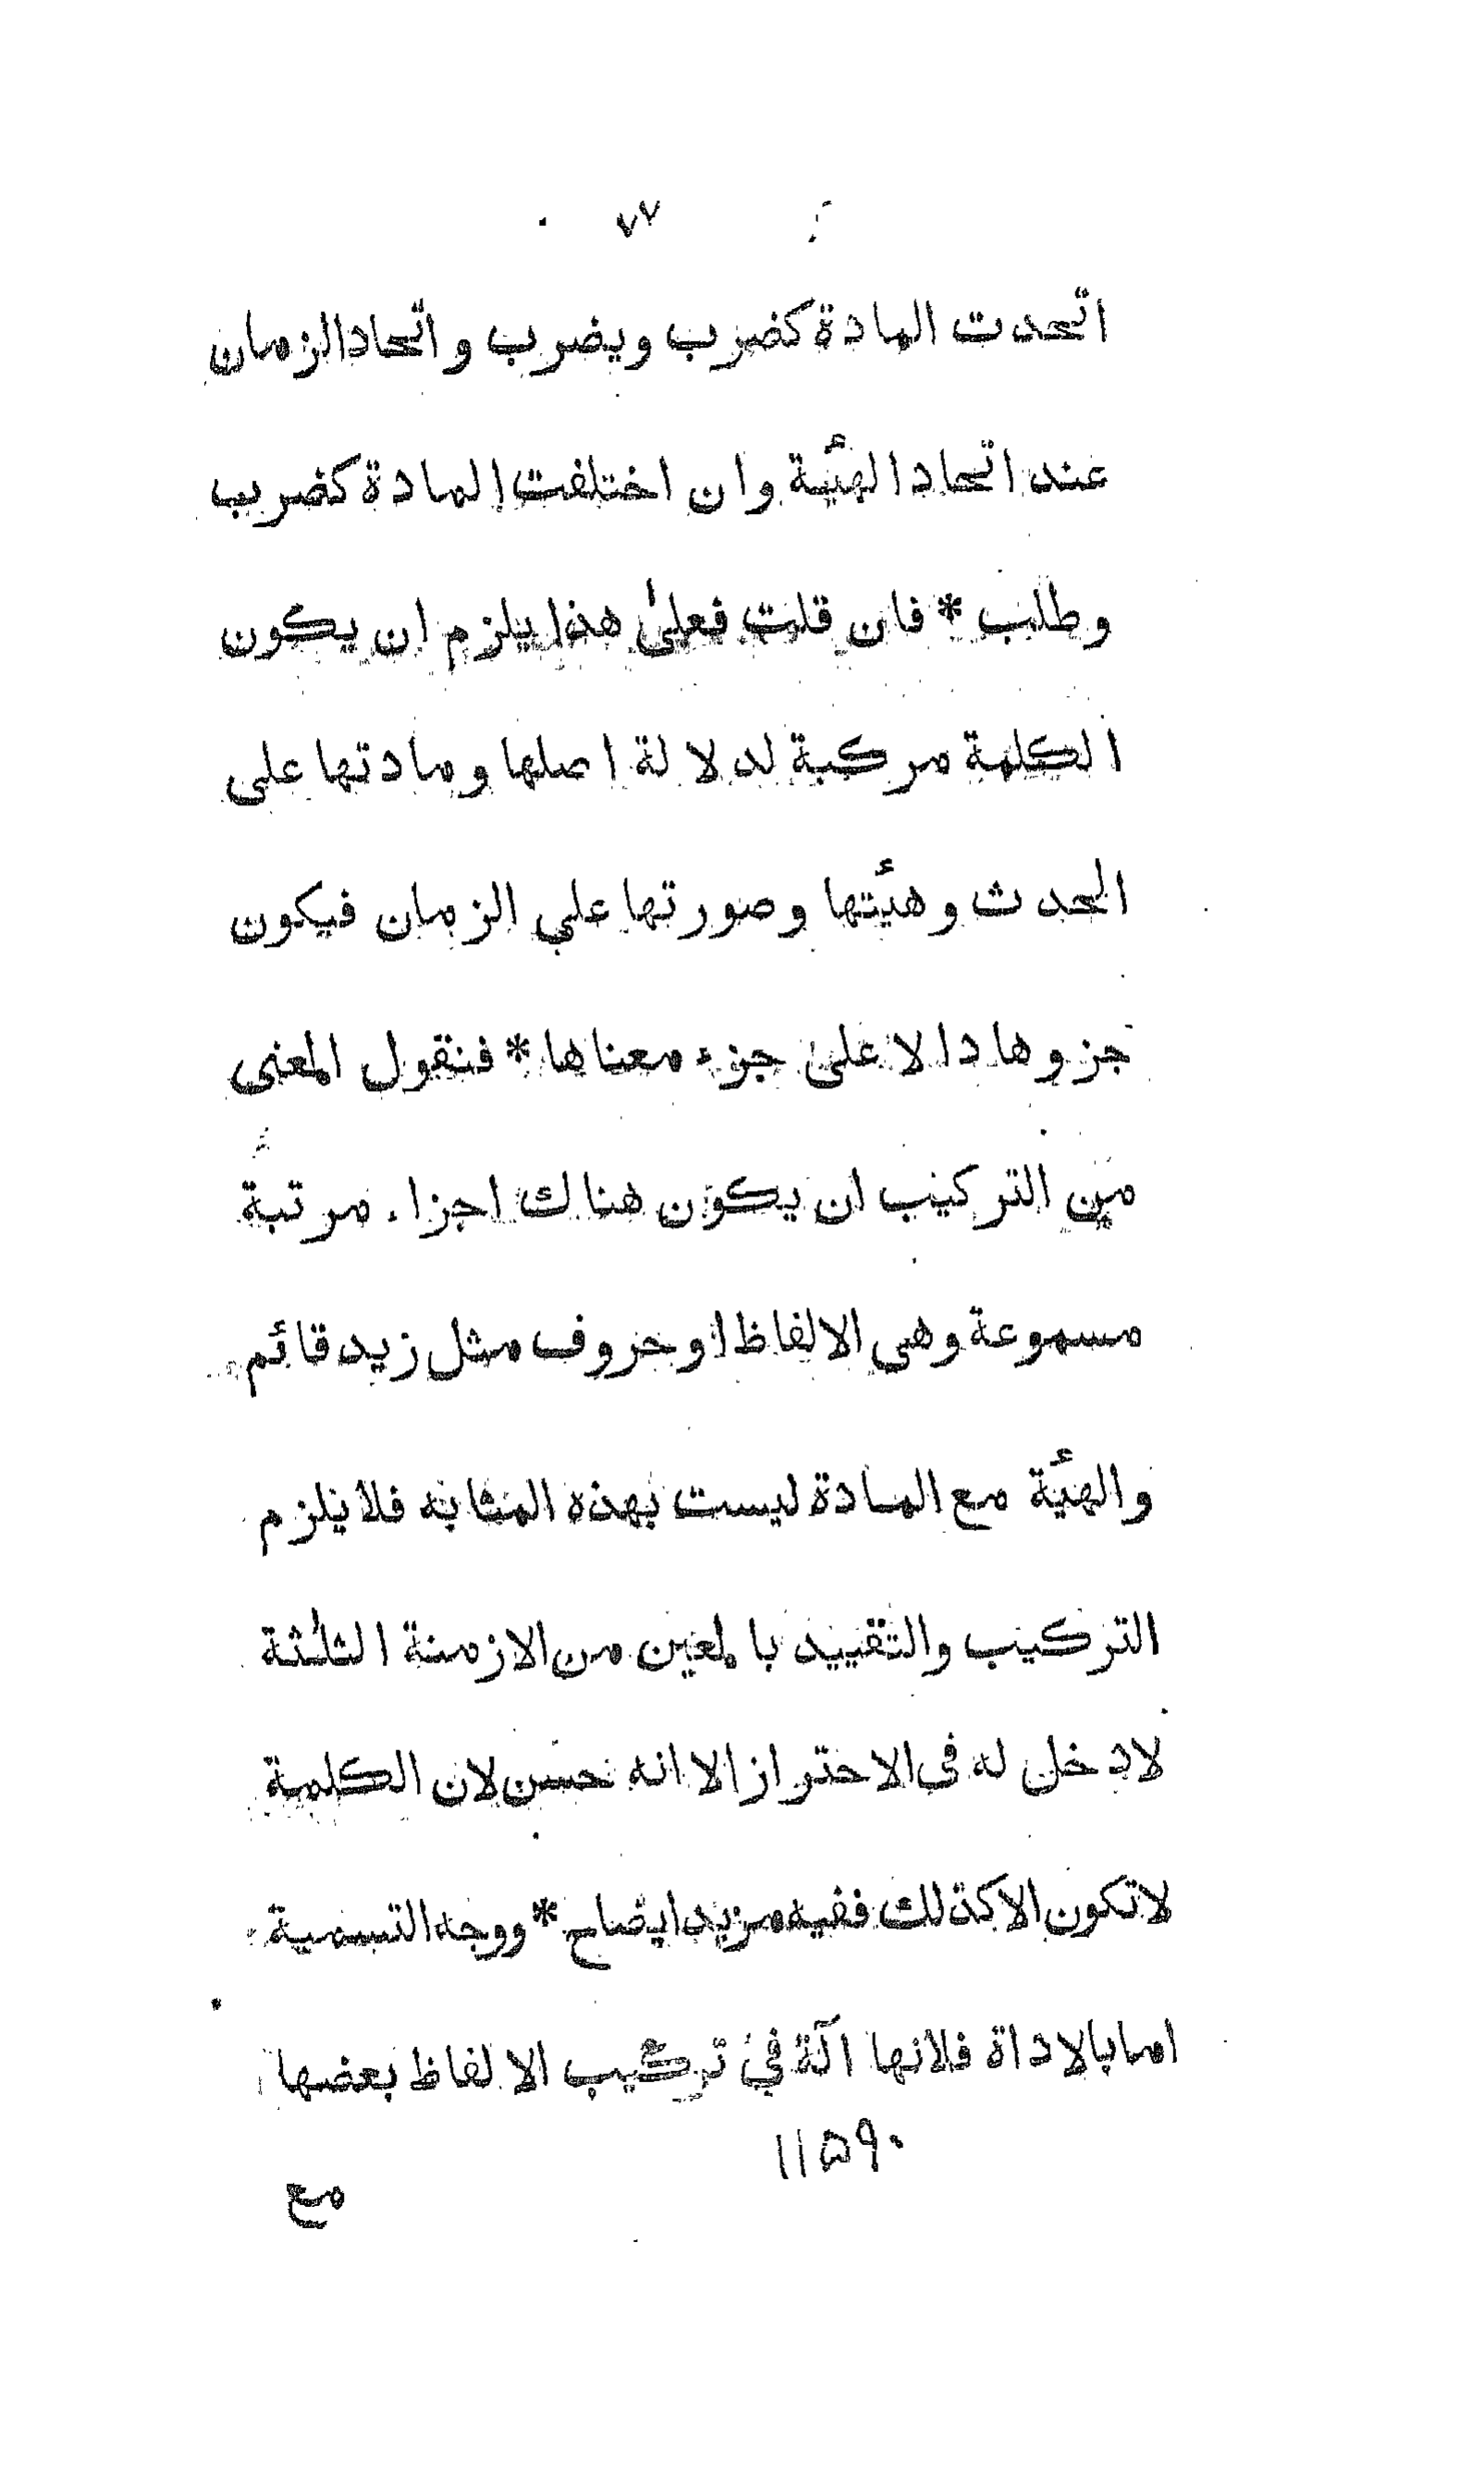 ٧٧
اتحدت المادة كضرب ويضرب واتحاد الزمان
عند اتحاد الهيئة وان اختلفت المادة كضرب
وطلب * فان قلت فعلى هذا يلزم ان يكون
الكلمة مركبة لدلالة اصلها ومادتها على
الحدث وهيئتها وصورتها على الزمان فيكون
جزوها دالا على جزء معناها * فنقول المعنى
من التركيب ان يكون هناك اجزاء مرتبة
مسموعة وهى الالفاظ او حروف مثل زيد قائم
والهيئة مع المادة ليست بهذه المثابه فلا يلزم
التركيب والتقييد بالمعين من الازمنة الثلثة
لادخل له فى الاحتراز الا انه حسن لان الكلمة
لاتكون الا كذلك ففيه مزيد ايضاح * ووجه التسمية
اما بالاداة فلانها آلة في تركيب الالفاظ بعضها
۱۱۵۹۰
مع